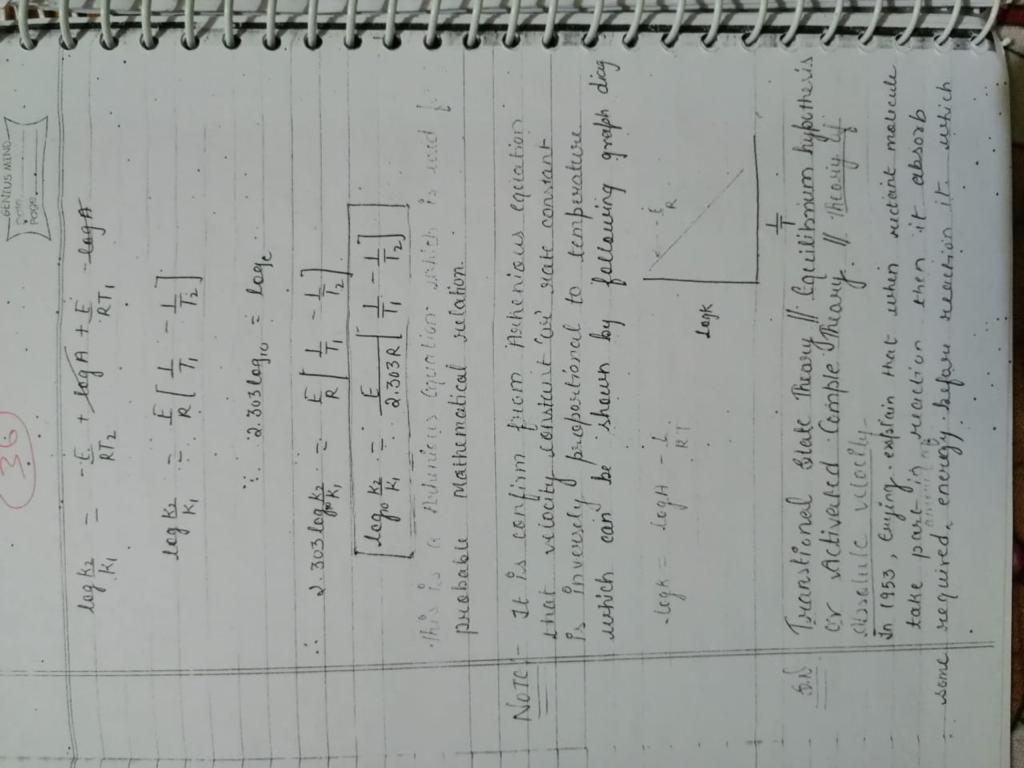 36
GENIUS MIND
Date:
Page:
log k2/k1 = -E/RT2 + logA + E/RT1 - logA
log k2/k1 = E/R [1/T1 - 1/T2]
∵ 2.303 log10 = loge
∴ 2.303 log10 k2/k1 = E/R [1/T1 - 1/T2]
[log10 k2/k1 = E/2.303R [1/T1 - 1/T2]]
This is a Arhenious equation which is used
probable mathematical relation.
NOTE:- It is confirm from Arshenious equation
that velocity constant or rate constant
is inversely proportional to temperature
which can be shown by following graph diag
log K = log A - 1/RT
LogK
R
1/T
Transtional State Theory // Equilibrium hypothesis
or Activated Complex Theory // Theory of
absolute velocity-
In 1933, Eyring explain that when rectant molecule
take part in reaction then it absorb
some required energy before reaction it which